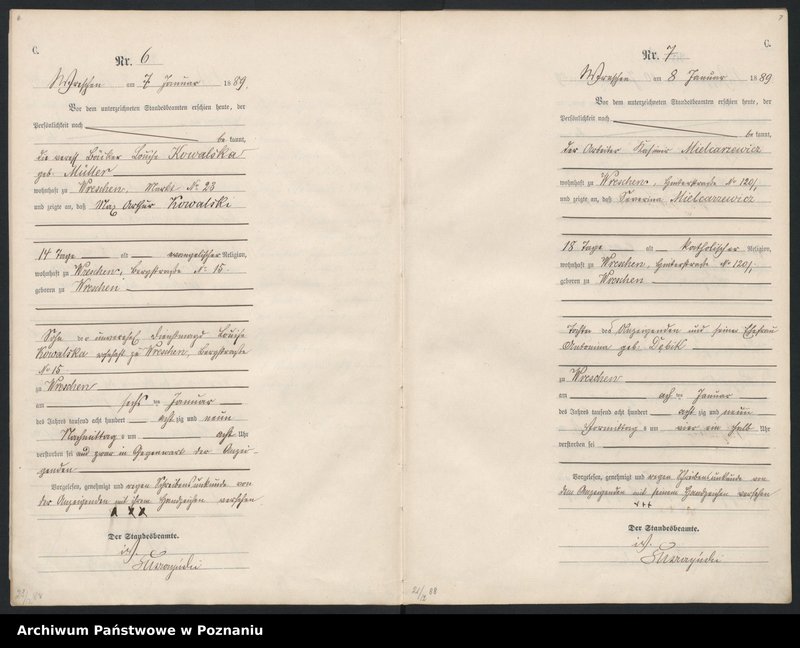 6
C.
Nr. 6
Wreschen am 7 Januar 1889.
Vor dem unterzeichneten Standesbeamten erschien heute, der
Persönlichkeit nach
be kannt,
die Louise Kowalska
geb. Müller
wohnhaft zu Wreschen, Markt No 23
und zeigte an, daß Max Arthur Kowalski
14 Tage alt evangelischer Religion,
wohnhaft zu Wreschen, Bergstraße No 15.
geboren zu Wreschen
Sohn der unverehel. Dienstmagd Louise
Kowalska wohnhaft zu Wreschen, Bergstraße
No 15
zu Wreschen
am sechs ten Januar
des Jahres tausend acht hundert acht zig und neun
Nachmittag s um acht Uhr
verstorben sei und zwar in Gegenwart der Anzei-
genden
Vorgelesen, genehmigt und wegen Schreibensunkunde von
der Anzeigenden mit ihrem Handzeichen versehen
XXX
Der Standesbeamte.
22/12 88
7
C.
Nr. 7
Wreschen am 8 Januar 1889
Vor dem unterzeichneten Standesbeamten erschien heute, der
Persönlichkeit nach
be kannt,
der Arbeiter Kasimir Mielcarzewicz
wohnhaft zu Wreschen, Hinterstraße No 120/,
und zeigte an, daß Severina Mielcarzewicz
18 Tage alt katholischer Religion,
wohnhaft zu Wreschen, Hinterstraße No 120/,
geboren zu Wreschen
Tochter des Anzeigenden und seiner Ehefrau
Antonina geb. Dębik
zu Wreschen
am ach ten Januar
des Jahres tausend acht hundert acht zig und neun
Vormittag s um vier ein halb Uhr
verstorben sei
Vorgelesen, genehmigt und wegen Schreibensunkunde von
dem Anzeigenden mit seinem Handzeichen versehen
+++
Der Standesbeamte.
21/12 88
Archiwum Państwowe w Poznaniu